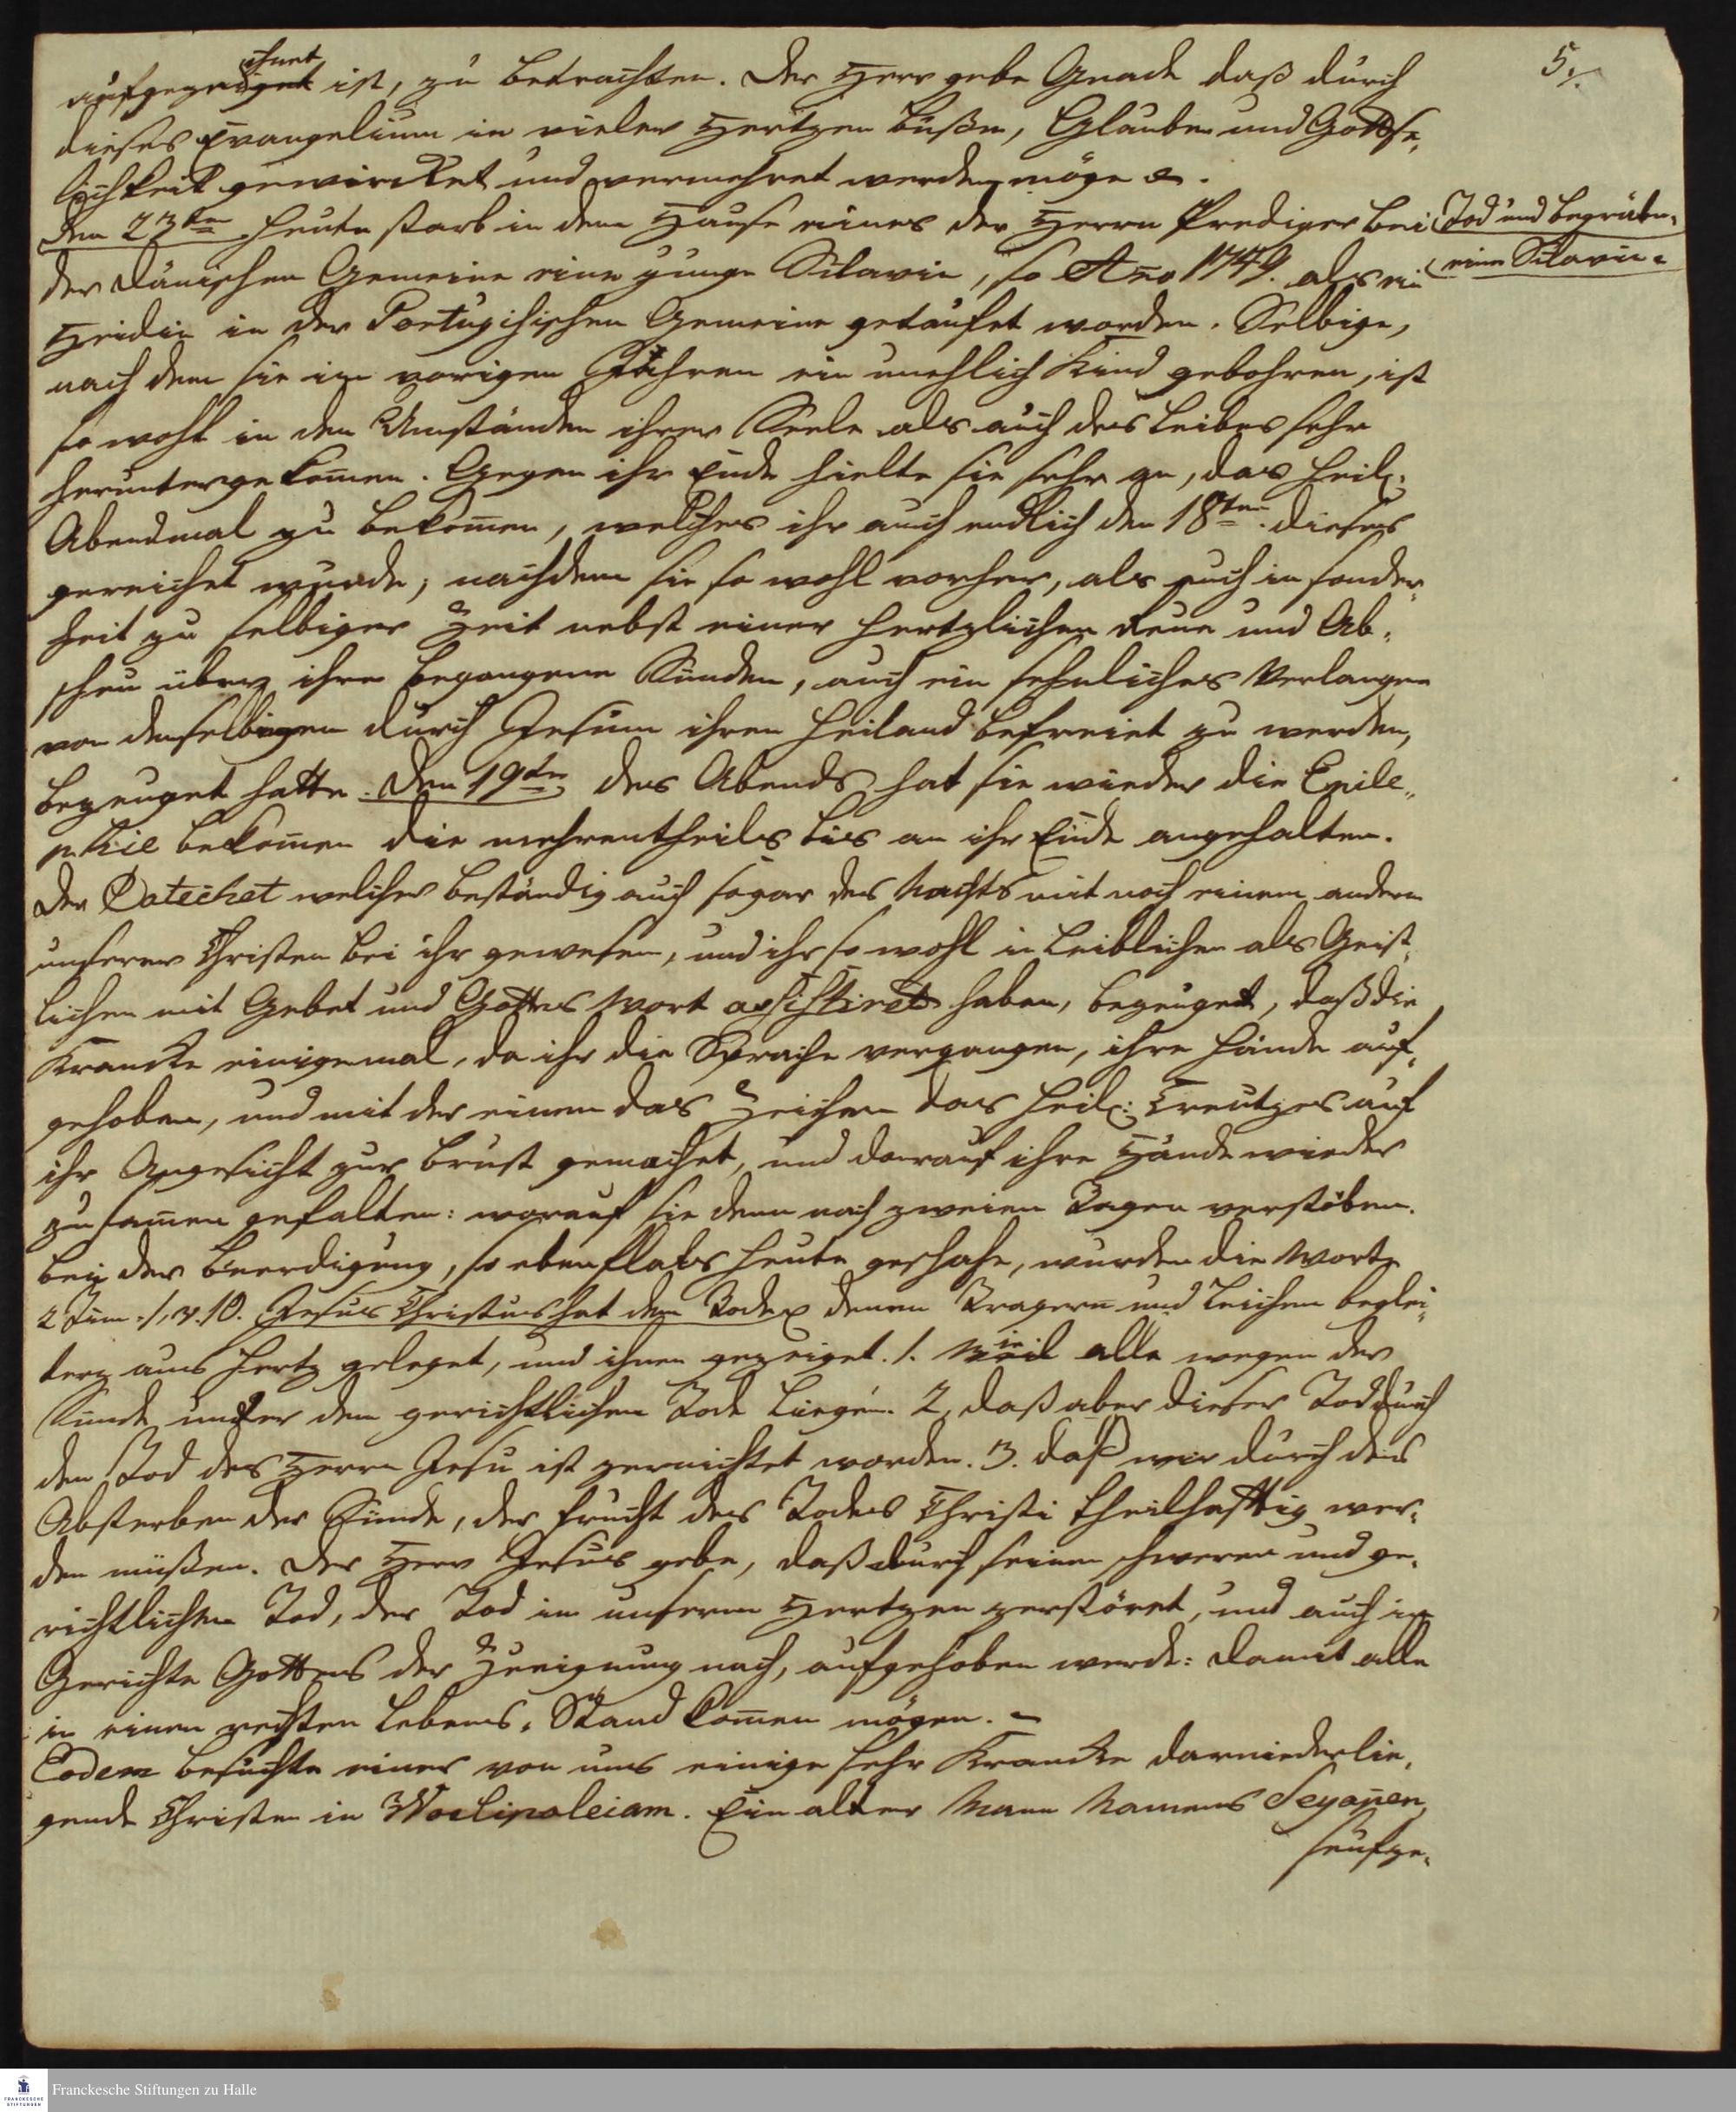 5.
aufgezeichnet ist, zu betrachten. Der Herr gebe Gnade daß durch
dieses Evangelium in vieler Hertzen Buße, Glauben und Gottse-
ligkeit gewircket und vermehret werden möge.
Den 23ten heute starb in dem Hause eines der Herrn Prediger bei
Tod und Begräbn.
einer Sclavin.
der Dänischen Gemeine eine junge Sclavin, so Año 1749. als ein
Heidin in der Portugisischen Gemeine getaufet worden. Selbige,
nach dem sie im vorigen Jahren ein unehlich Kind gebohren, ist
so wohl in den Umständen ihrer Seele als auch des Leibes sehr
heruntergekom̅en. Gegen ihr Ende hielte sie sehr an, das heil.
Abendmal zu bekom̅en, welches ihr auch endlich den 18ten dieses
gereichet wurde, nachdem sie so wohl vorher, als auch in sonder-
heit zu selbiger Zeit nebst einer hertzlichen Reue und Ab-
scheu über ihre begangene Sünden, auch ein sehnliches Verlangen
von denselbigen durch Jesum ihren Heiland befreiet zu werden,
bezeuget hatte. Den 19ten des Abends hat sie wieder die Epile-
ptie bekom̅en die mehrentheils bis an ihr Ende angehalten.
Der Catechet welcher beständig auch sogar des Nachts mit noch einem andern
unserer Christen bei ihr gewesen, und ihr so wohl in Leiblichen als Geist-
lichen mit Gebet und Gottes Wort assistiret haben, bezeuget, daß die
Krancke einigemal, da ihr die Sprache vergangen, ihre Hände auf-
gehoben, und mit der einen das Zeichen des heil: Creutzes auf
ihr Angesicht zur Brust gemachet, und darauf ihre Hände wieder
zusam̅en gefalten: worauf sie denn nach zweien Tagen verstorben.
Bey der Beerdigung, so ebenfalls heute geschahe, wurden die Worte
2 Tim. 1, v. 10. Jesus Christus hat dem Tode denen Tragern und Leichen beglei-
tern ans Hertz geleget, und ihnen gezeiget. 1. wie alle wegen der
Sünde unter dem gerichtlichen Tode liegen. 2. daß aber dieser Tod durch
den Tod des Herrn Jesu ist zernichtet worden. 3. daß wir durch das
Absterben der Sünde, der Frucht des Todes Christi theilhafftig wer-
den müßen. Der Herr Jesus gebe, daß durch seinen schweren und ge-
richtlichen Tod, der Tod in unserm Hertzen zerstöret, und auch im
Gerichte Gottes der Zueignung nach, aufgehoben werde: damit alle
in einen rechten Lebens-Stand kom̅en mögen. –
Eodem besuchte einer von uns einige sehr Krancke darniederlie-
gende Christen in Woelipaleiam. Ein alter Mann Namens Seyanen
seufze-
Franckesche Stiftungen zu Halle
FRANCKESCHE
STIFTUNGEN